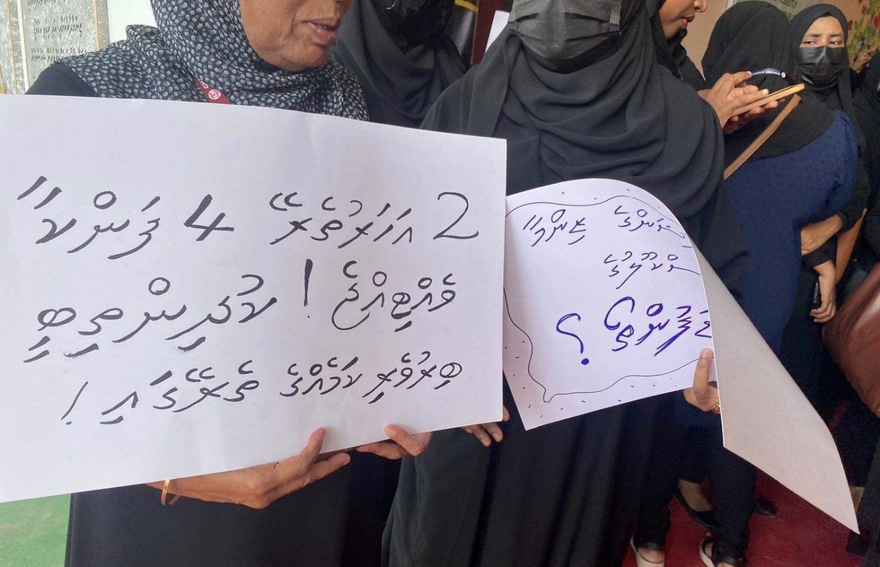 2 އަހަރުތެރޭ 4 ފަންކާ
ވެއްޓިއްޖެ! ކުދިންތިބީ
ބިރުވެރި ކަމެއްގެ ތެރޭގައި!
ޒިންމާ
ސްކޫލުގެ
؟